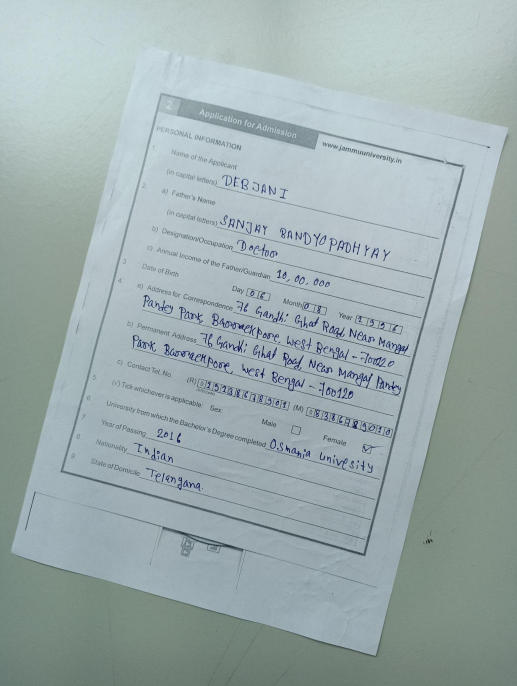 2 Application for Admission www.jammuuniversity.in
PERSONAL INFORMATION
1. Name of the Applicant
(in capital letters) DEBJANI
2. a) Father's Name
(in capital letters) SANJAY BANDYOPADHYAY
b) Designation/Occupation Doctor
c) Annual Income of the Father/Guardian 10,00,000
3. Date of Birth Day 06 Month 08 Year 1996
4. a) Address for Correspondence 76 Gandhi Ghat Road, Near Mangal
Pandey Park, Barrackpore, West Bengal - 700120
b) Permanent Address 76 Gandhi Ghat Road, Near Mangal Pandey
Park, Barrackpore, West Bengal - 700120
c) Contact Tel. No. (R) (M)
5. (✓) Tick whichever is applicable: Sex: Male Female ✓
6. University from which the Bachelor's Degree completed Osmania Univesity
7. Year of Passing 2016
8. Nationality Indian
9. State of Domicile Telangana.